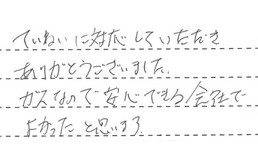 ていねいに対応していただき
ありがとうございました。
ガスなので安心できる会社で
よかったと思います。